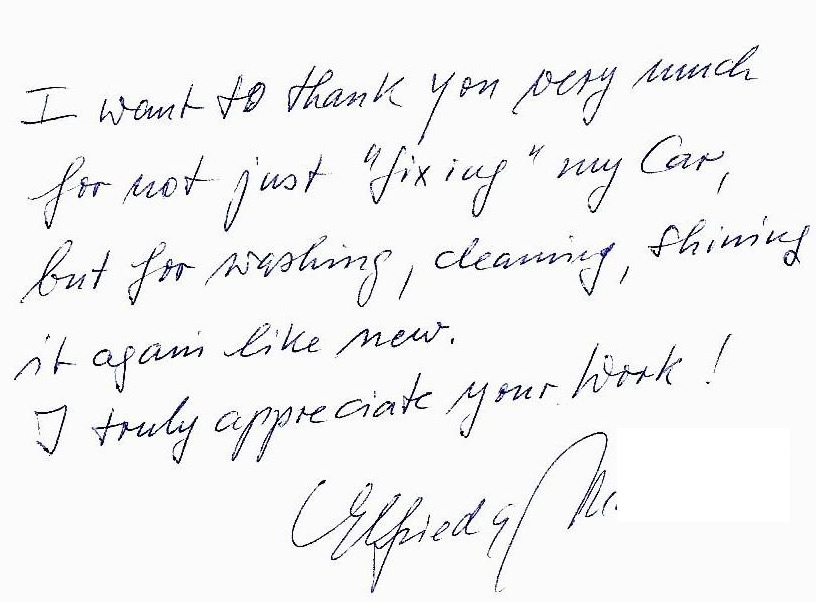 I want to thank you very much
for not just "fixing" my Car,
but for washing, cleaning, shining
it again like new.
I truly appreciate your Work!
Elfrieda M.